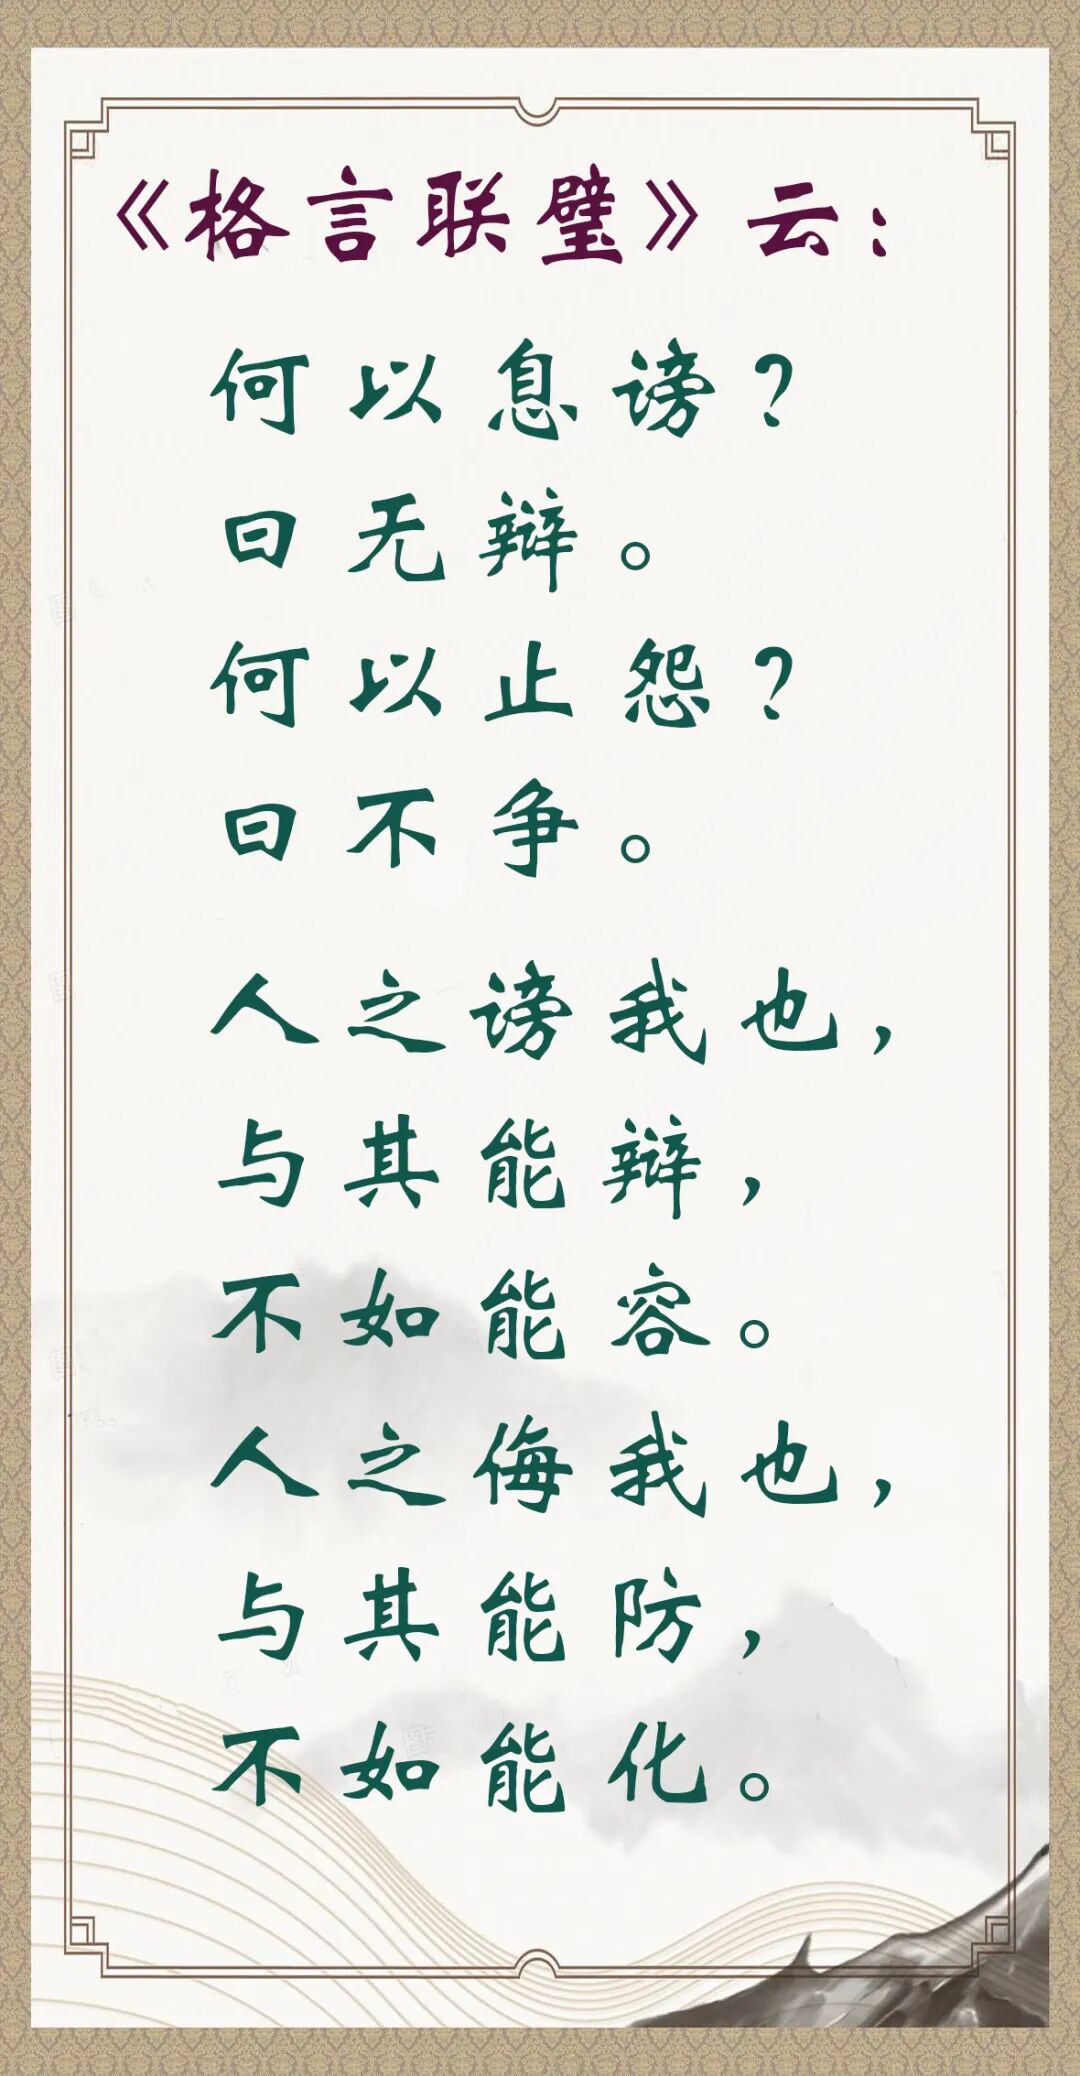 《格言联璧》云：
何以息谤？
曰无辩。
何以止怨？
曰不争。
人之谤我也，
与其能辩，
不如能容。
人之侮我也，
与其能防，
不如能化。